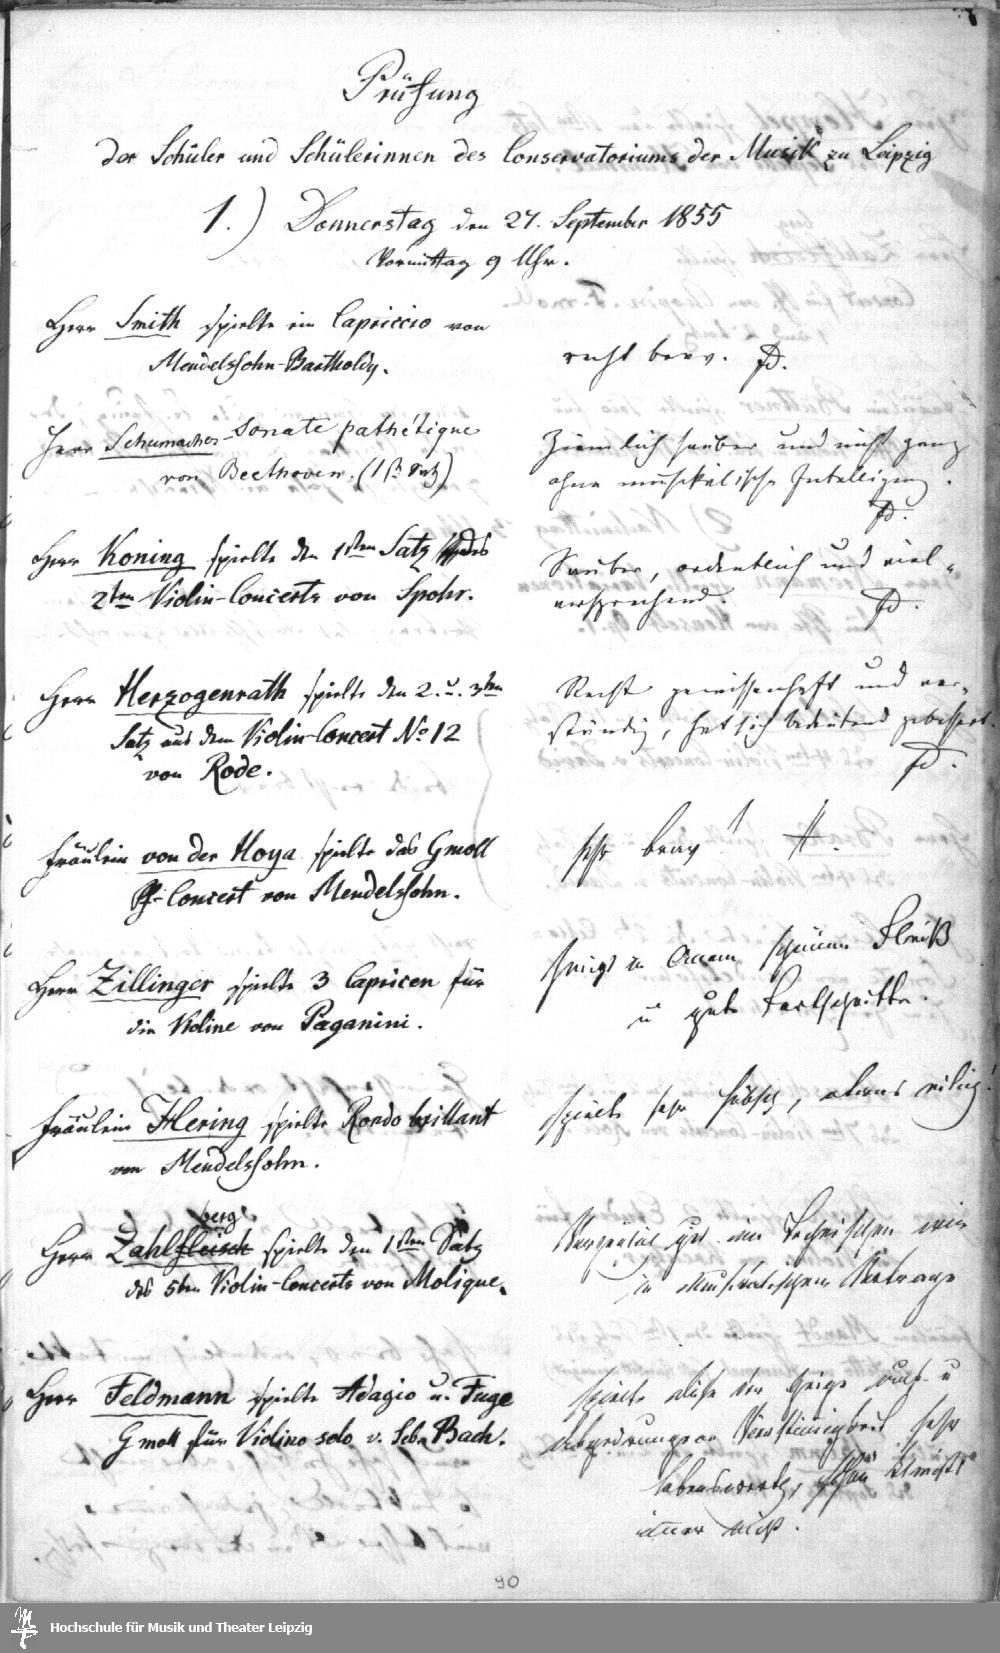 Prüfung
der Schüler und Schülerinnen des Conservatoriums der Musik zu Leipzig
1.) Donnerstag den 27. September 1855
Vormittag 9 Uhr.
Herr Smith spielte ein Capriccio von
Mendelssohn-Bartholdy.
recht brav. FD.
Herr Schumacher - Sonate pathétique
von Beethoven. (1ste Satz)
Ziemlich sauber und nicht ganz
ohne musikalische Intelligenz.
FD.
Herr Koning spielte den 1sten Satz des
2ten Violin-Concerts von Spohr.
Sauber, ordentlich und viel-
versprechend. FD.
Herr Herzogenrath spielte den 2. u. 3ten
Satz aus dem Violin-Concert No 12
von Rode.
Recht gewissenhaft und ver-
ständig, hat sich bedeutend gebessert.
FD.
Fräulein von der Hoya spielte das Gmoll
Pf-Concert von Mendelssohn.
sehr brav!
Herr Zillinger spielte 3 Capricen für
die Violine von Paganini.
schönen Fleiß
u gute Fortschritte.
Fräulein Hering spielte Rondo brillant
von Mendelssohn.
spielte sehr hübsch, etwas eilig!
berg
Herr Zahlfleisch spielte den 1sten Satz
des 5ten Violin-Concerts von Molique.
im Technischen wie
im musikalischen Vortrage
Herr Feldmann spielte Adagio u. Fuge
G moll für Violino solo v. Seb. Bach.
spielte diese
sehr
lobenswerth,
90
Hochschule für Musik und Theater Leipzig